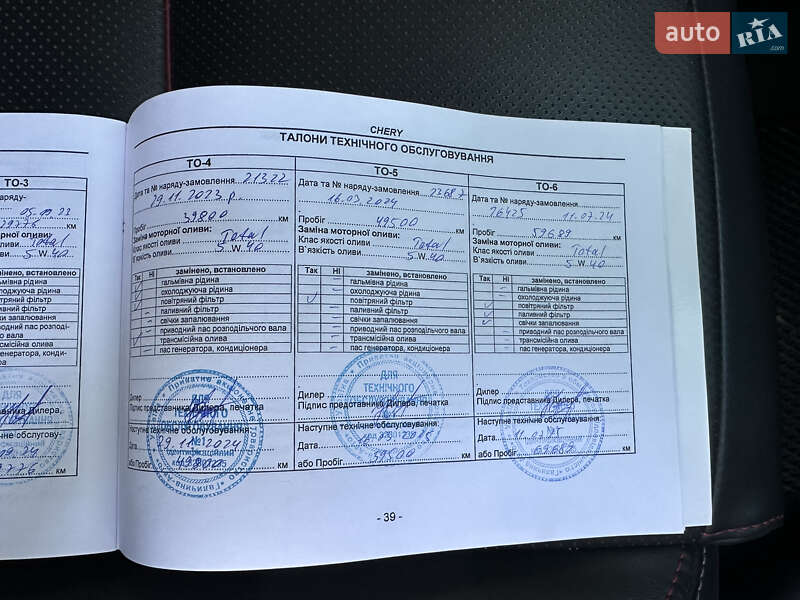 auto RIA .com
CHERY
ТАЛОНИ ТЕХНІЧНОГО ОБСЛУГОВУВАННЯ
ТО-3
05.09.23
29776 км
моторної оливи:
оливи Total
оливи 5 W 40
замінено, встановлено
гальмівна рідина
охолоджуюча рідина
повітряний фільтр
паливний фільтр
свічки запалювання
трансмісійна олива
км
ТО-4
Дата та № наряду-замовлення 21322
29.11.2023 р.
Пробіг 39800 км
Заміна моторної оливи:
Клас якості оливи Total
В`язкість оливи 5 W 40
Так Ні замінено, встановлено
гальмівна рідина
охолоджуюча рідина
повітряний фільтр
паливний фільтр
свічки запалювання
приводний пас розподільчого вала
трансмісійна олива
пас генератора, кондиціонера
Дилер
Підпис представника Дилера, печатка
Наступне технічне обслуговування:
Дата 29.11.2024
або Пробіг 49800 км
ТО-5
Дата та № наряду-замовлення 23687
16.03.2024
Пробіг 49500 км
Заміна моторної оливи:
Клас якості оливи Total
В`язкість оливи 5 W 40
Так Ні замінено, встановлено
гальмівна рідина
охолоджуюча рідина
повітряний фільтр
паливний фільтр
свічки запалювання
приводний пас розподільчого вала
трансмісійна олива
пас генератора, кондиціонера
ДЛЯ ТЕХНІЧНОГО
Дилер
Підпис представника Дилера, печатка
Наступне технічне обслуговування:
Дата 16.03.2025
або Пробіг 59500 км
ТО-6
Дата та № наряду-замовлення
26425 11.07.24
Пробіг 59689 км
Заміна моторної оливи:
Клас якості оливи Total
В`язкість оливи 5 W 40
Так Ні замінено, встановлено
гальмівна рідина
охолоджуюча рідина
повітряний фільтр
паливний фільтр
свічки запалювання
приводний пас розподільчого вала
трансмісійна олива
пас генератора, кондиціонера
Дилер
Підпис представника Дилера, печатка
Наступне технічне обслуговування:
Дата
або Пробіг 69689 км
- 39 -